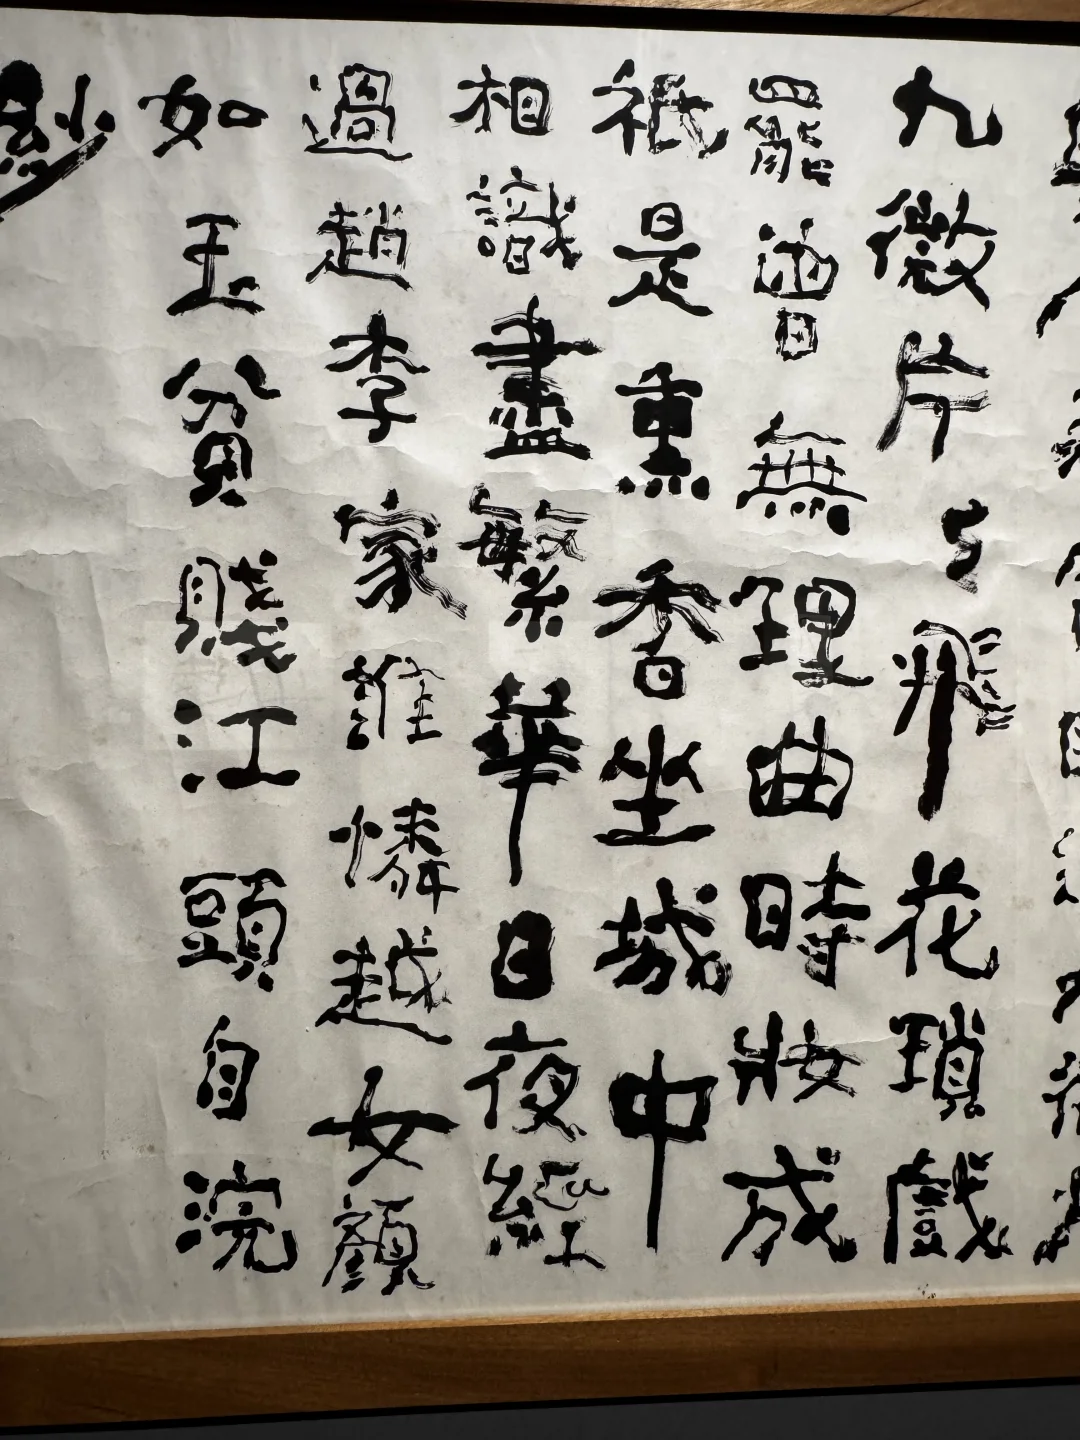 九微片々飛花瑣戲
罷曾無理曲時妝成
祇是熏香坐城中
相識盡繁華日夜經
過趙李家誰憐越女顏
如玉貧賤江頭自浣
紗